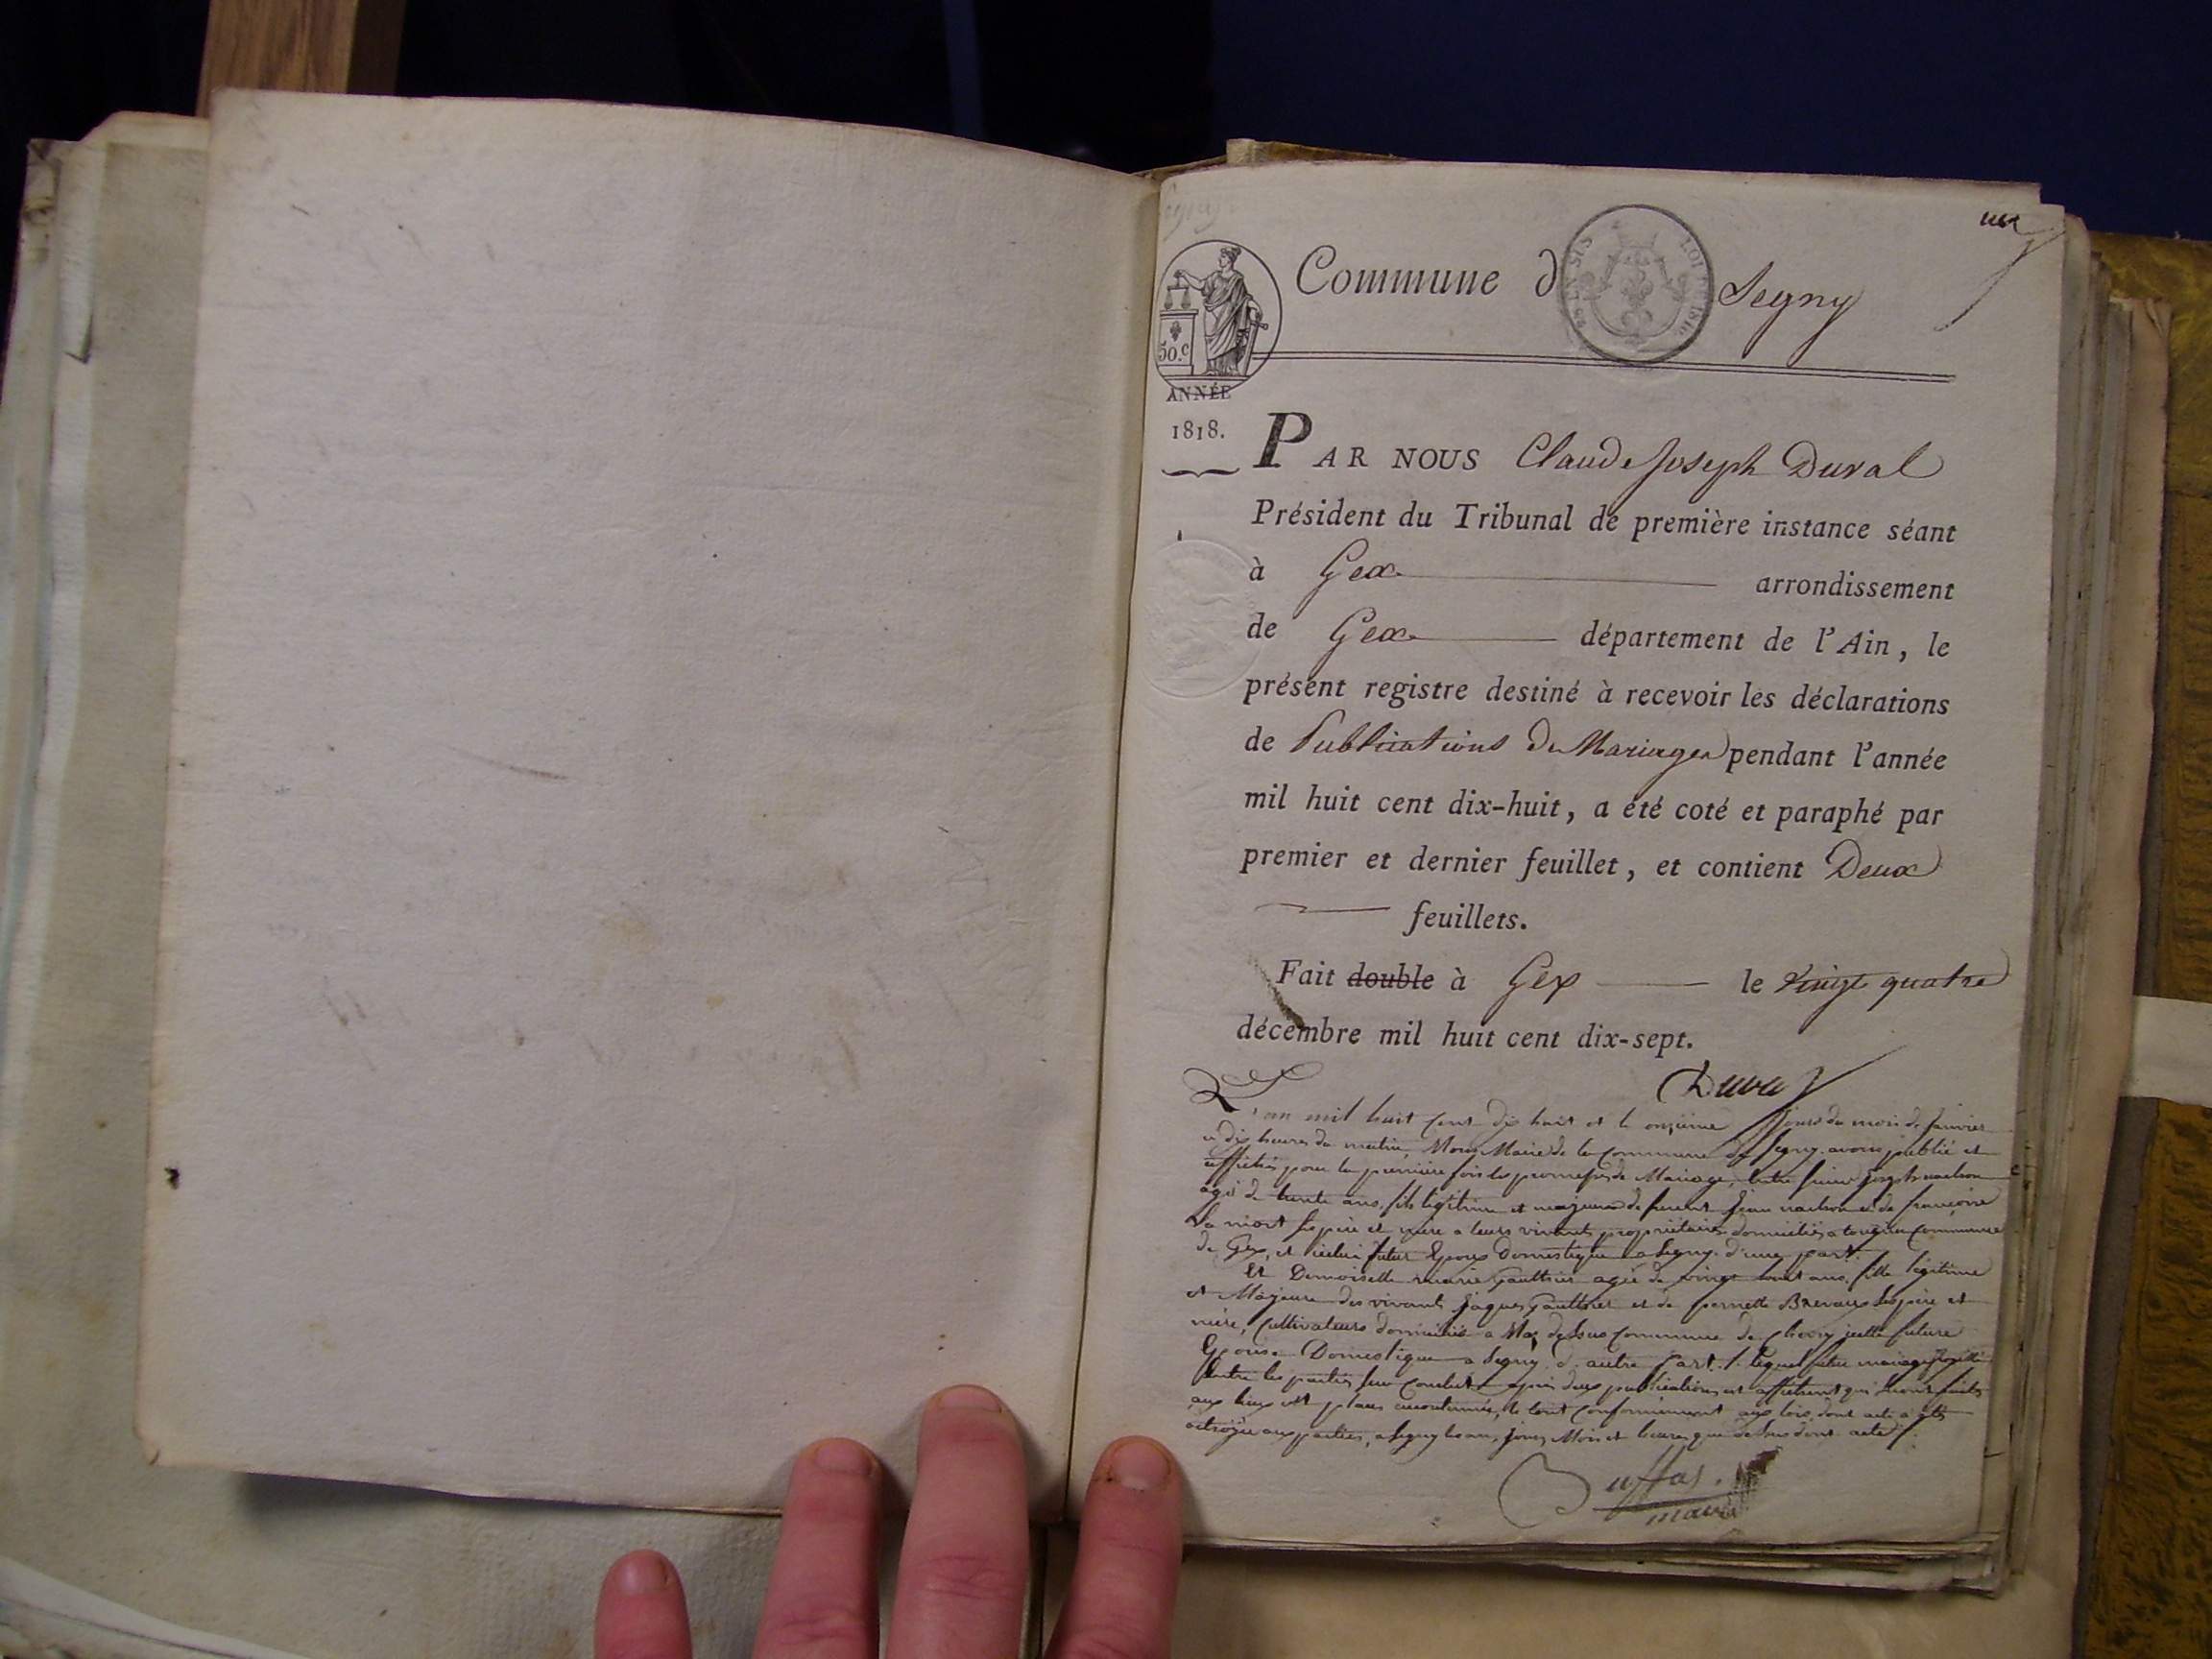 Commune d Segny
LOI 1816
50.c
ANNÉE
1818.
PAR NOUS Claude Joseph Duval
Président du Tribunal de première instance séant
à Gex arrondissement
de Gex département de l'Ain, le
présent registre destiné à recevoir les déclarations
de Publications de Mariages pendant l'année
mil huit cent dix-huit, a été coté et paraphé par
premier et dernier feuillet, et contient Deux
feuillets.
Fait double à Gex le vingt quatre
décembre mil huit cent dix-sept.
Duval
L'an mil huit cent dix huit et le onzieme jour du mois de Janvier
a dix heures du matin, Nous Maire de la commune de Segny avons publié et
affiché pour la premiere fois les promesses de Mariage, entre sieur Joseph
agé de trente ans, fils legitime et majeur de Jean et de françoise
La mort ses père et mere a leurs vivant proprietaires domiciliés a commune
de Gex, et icelui futur Epoux Domestique a Segny d'une part.
Et Demoiselle marie Gaulthier agée de vingt ans, fille legitime
et Majeure des vivants Jaques Gaulthier et de pernette ses père et
mère, Cultivateurs domiciliés a commune de Chevry icelle future
Epouse Domestique a Segny d. autre part. Lequel futur mariage
Entre les parties sera Conclut après deux publications et affiches qui seront faites
aux lieux et places accoutumés, le tout conformement aux lois, dont acte a été
octroyé aux parties, a Segny les an, jour, Mois et heure que dessus dont acte.
Buffas.
maire